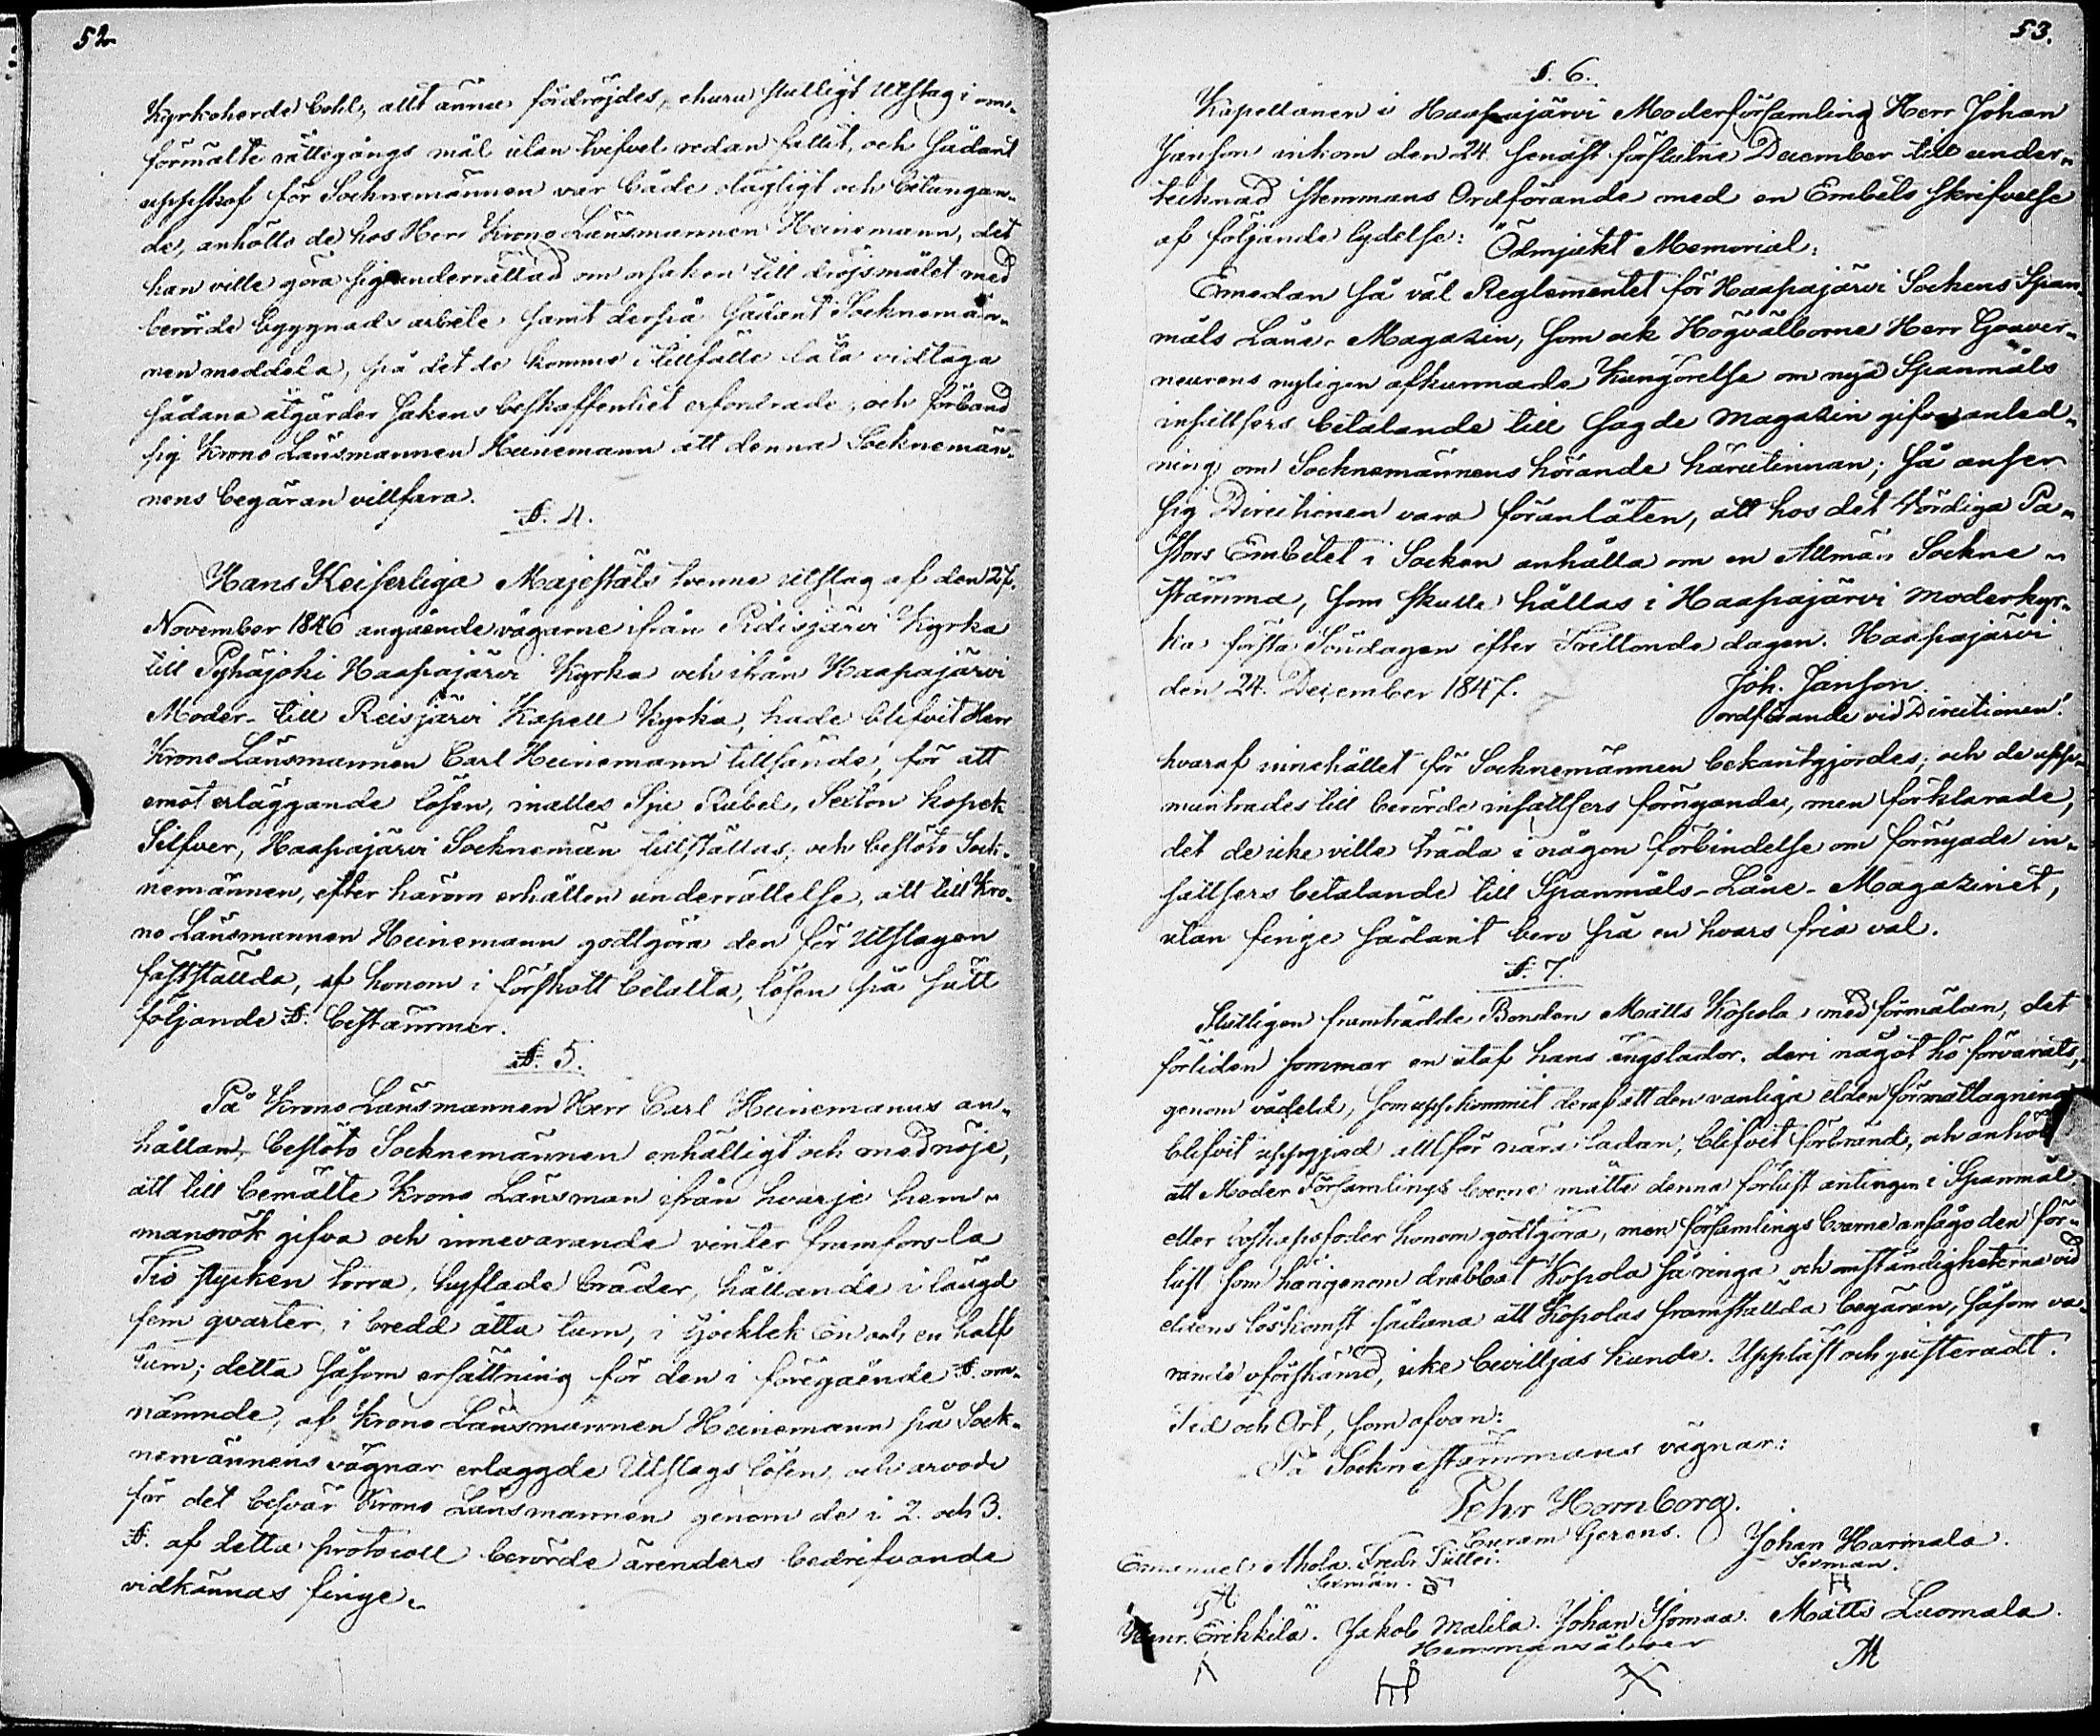 52
Kyrkoherde bohl, allt ännu fördröjdes, ehuru slutligt Utslag i om-
förmälte rättegångs mål utan tvifvel redan fallit, och sådant
uppskof för Socknemännen var både olägligt och betungan-
de, anhöllo de hos Herr Krono Länsmannen Heinemann, det
han ville göra sig underrättad om orsaken till dröjsmålet med
berörde byggnads arbete samt derpå sådant Sockneman-
nen meddela, på det de komme i tillfälle låta vidtaga
sådana åtgärder sakens beskaffenhet erfordrade, och förband
sig Krono Länsmannen Heinemann att denna Socknemän-
nens begäran villfara.
§. 4.
Hans Keiserliga Majestäts tvenne utslag af den 27.
November 1846 angående vägarne ifrån Pidisjärvi Kyrka
till Pyhäjoki Haapajärvi Kyrka och ifrån Haapajärvi
Moder- till Reisjärvi Kapell Kyrka, hade blifvit Herr
Krono Länsmannen Carl Heinemann tillsände, för att
emot erläggande lösen, inalles Sju Rubel, Sexton kopek
Silfver, Haapajärvi Socknemän tillställas, och beslöto Sock-
nemännen, efter härom erhållen underrättelse, att till Kro-
no Länsmannen Heinemann godtgöra den för Utslagen
fastställda, af honom i förskott betalta, lösen på sätt
följande §. bestämmer.
§. 5.
På Krono Länsmannen Herr Carl Heinemanns an-
hållan, beslöto Socknemännen enhälligt och med nöje,
att till bemälte Krono Länsman ifrån hvarje hem-
mansrök gifva och innevarande vinter framforsla
Tio stycken torra, hyflade bräder, hållande i längd
fem qvarter, i bredd åtta tum, i tjocklek En och en half
tum; detta såsom ersättning för den i föregående §. om-
nämnde, af Krono Länsmannen Heinemann på Sock-
nemännens vägnar erlaggde Utslags lösen, och arvode
för det besvär Krono Länsmannen genom de i 2. och 3.
§. af detta protocoll berörde ärenders bedrifvande
vidkännas finge.
53.
§. 6.
Kapellanen i Haapajärvi Moderförsamling Herr Johan
Janson inkom den 24. senast förflutne December till under-
tecknad Stemmans Ordförande med en Embets skrifvelse
af följande lydelse: Ödmjukt Memorial:
Emedan så väl Reglementet för Haapajärvi Sockens Span-
måls Låne-Magazin, som ock Högvälborne Herr Gouver-
neurens nyligen afkunnade Kungörelse om nya Spanmåls
insattsers betalande till sagde Magazin gifva anled-
ning om Socknemännens hörande häruti­nnan; så anser
sig Directionen vara föranlåten, att hos det Vördiga Pa-
stors Embetet i Socken anhålla om en Allmän Sockne-
stämma, som skulle hållas i Haapajärvi moderkyr-
ka första Söndagen efter Trettonde dagen. Haapajärvi
den 24. December 1847.
Joh. Janson.
ordförande vid Directionen.
hvaraf innehållet för Socknemännen bekantgjordes, och de upp-
muntrades till berörde insattsers förnyande, men förklarade,
det de icke ville träda i någon förbindelse om förnyade in-
sattsers betalande till Spanmåls-Låne-Magazinet,
utan finge sådant bero på en hvars fria val.
§. 7.
Slutligen framträdde Bonden Matts Kopola med förmälan, det
förliden sommar en utaf hans ängslador, deri något hö förvarats,
genom vådeld, som uppkommit deraf att den vanliga elden för mattagning
blifvit uppgjord alltför nära ladan, blifvit förbränd, och anhöll
att Moder Församlings boerne måtte denna förlust antingen i Spanmål
eller boskapsfoder honom godtgöra, men församlings boerne ansågo den för-
lust som härigenom drabbat Kopola så ringa och omständigheterna vid
eldens löskomst sådana att Kopolas framställda begäran, såsom va-
rande oförskämd, icke beviljas kunde. Uppläst och justeradt.
Tid och Ort, som ofvan:
På Socknestämmans vägnar:
Pehr Hornborg.
Curam Gerens.
Emanuel Ahola. Fredr. Tuttei. Johan Harmala.
Sexman. Sexman.
Henr. Erkkilä. Jakob Malila. Johan Isomaa. Matts Luomala.
Hemmansåboer
M